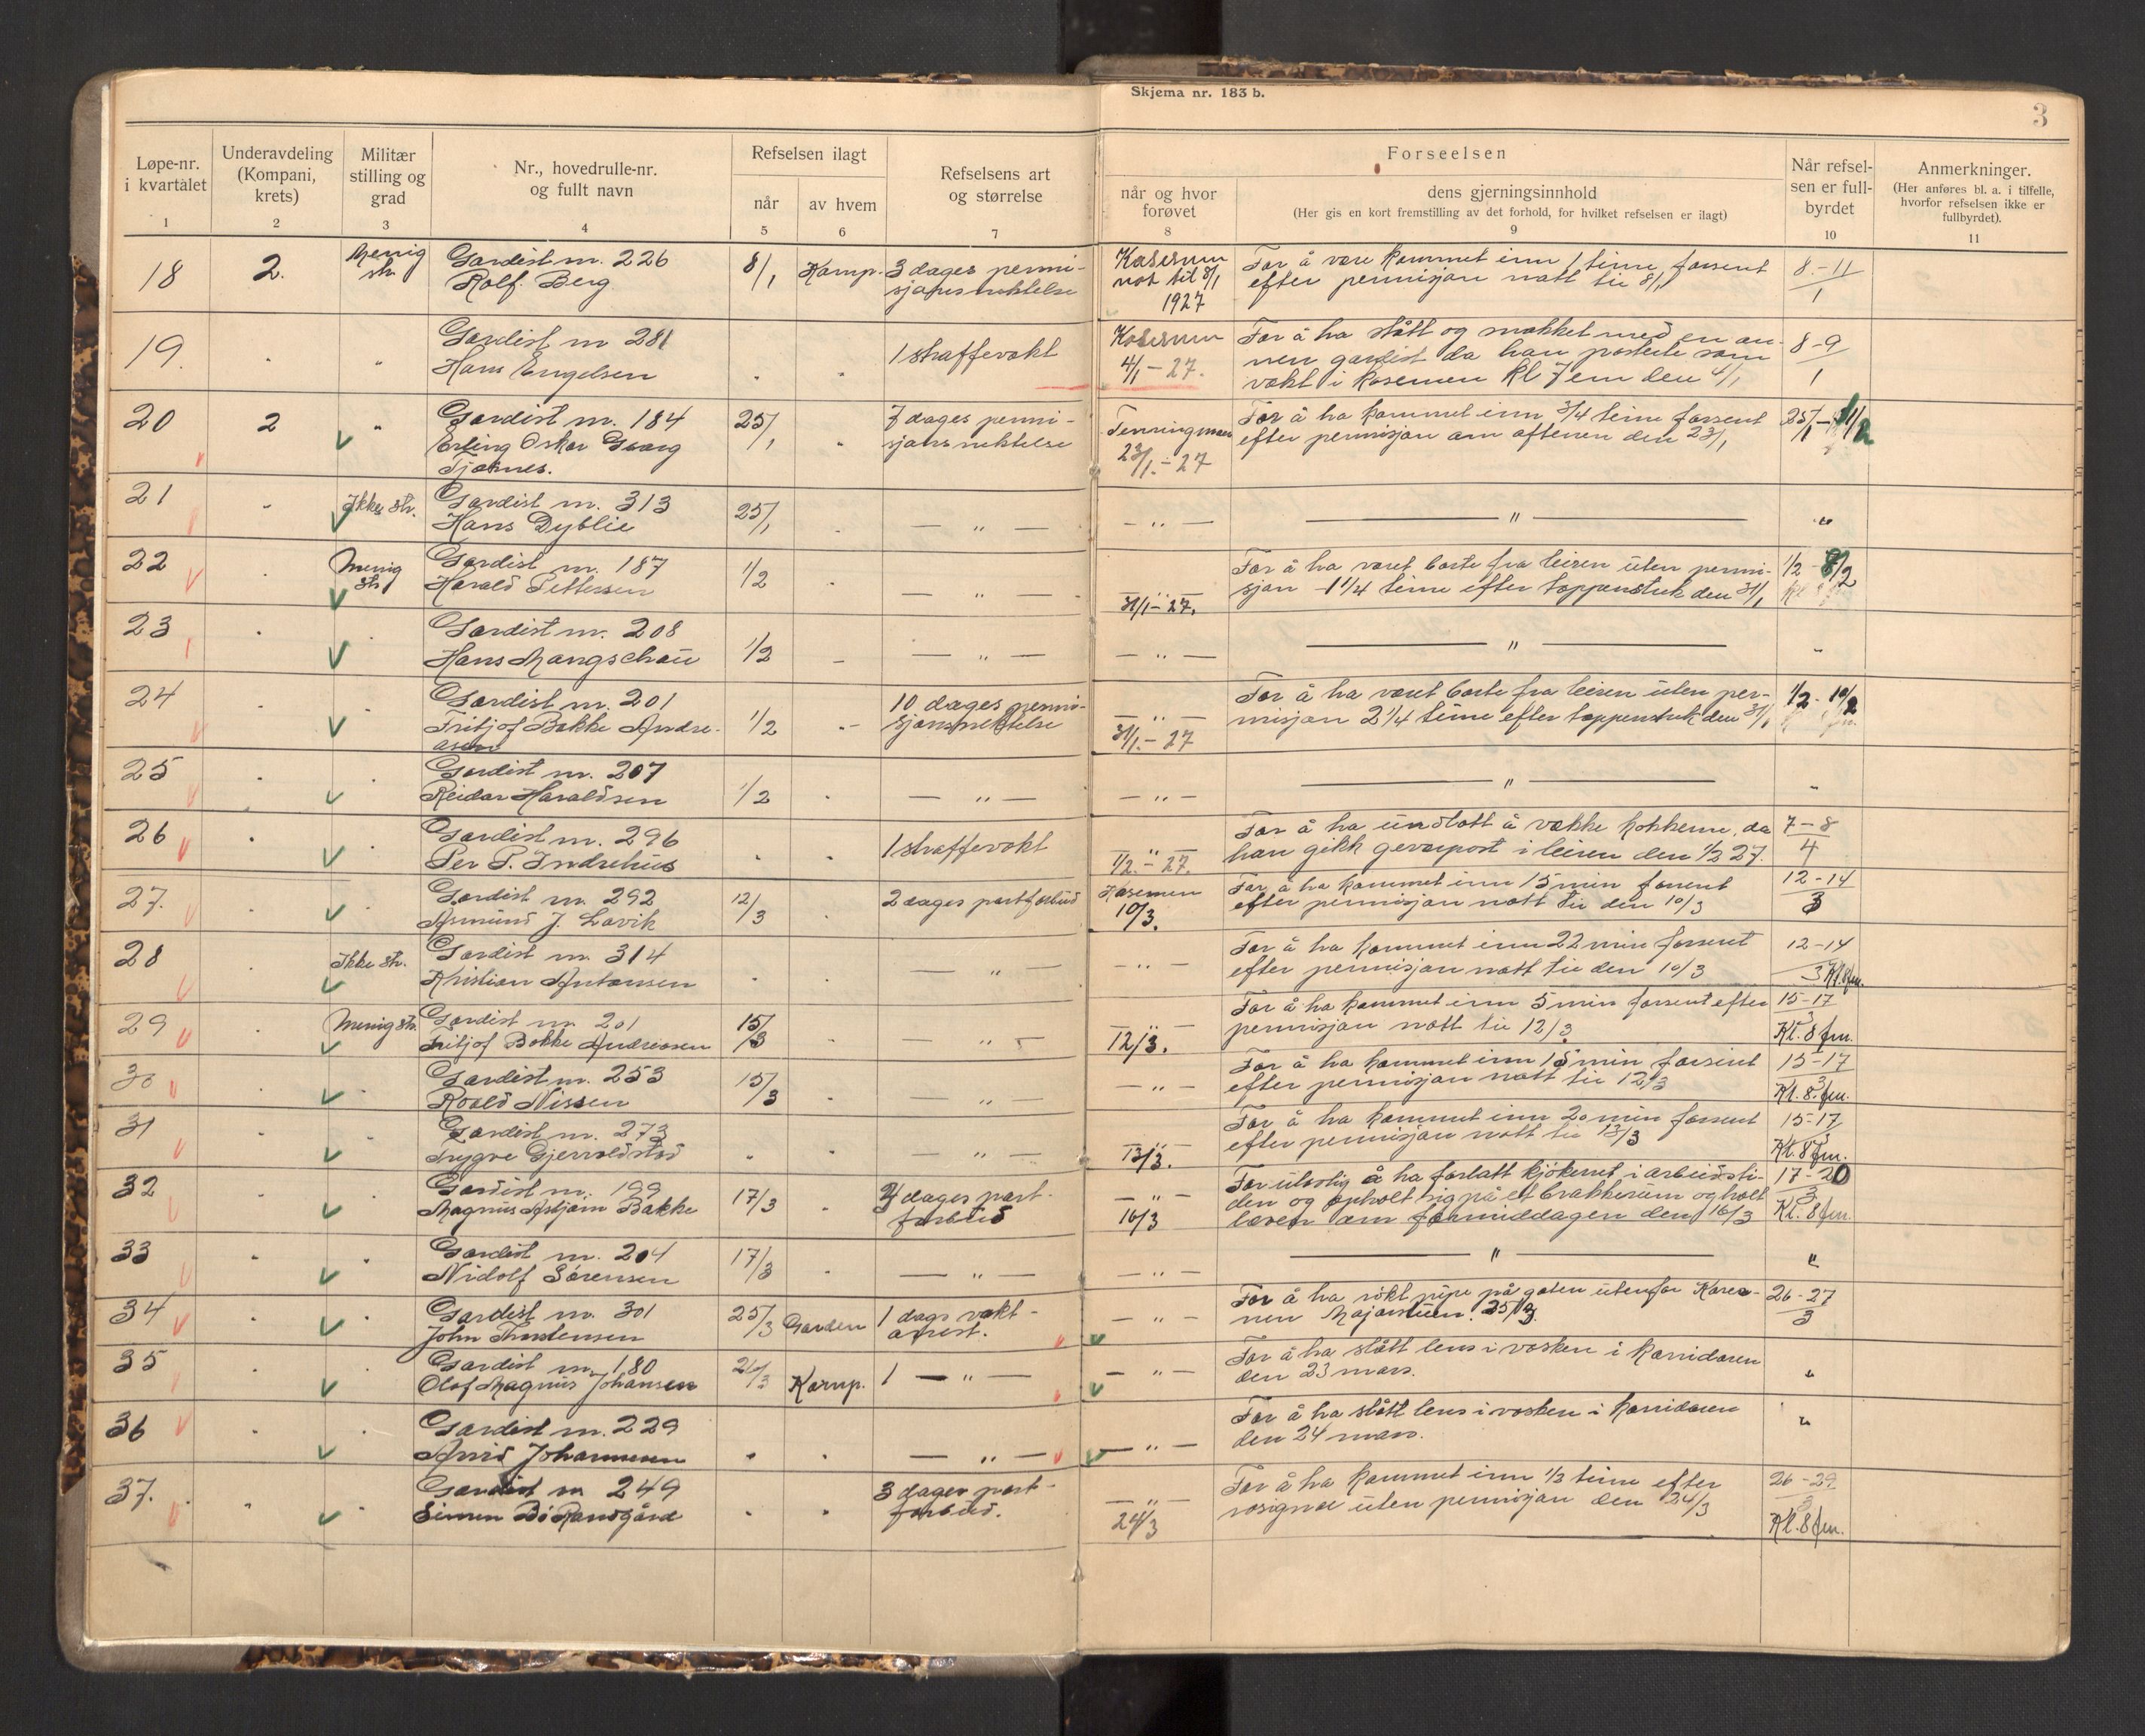 Skjema nr. 183 b.
3
Løpe-nr. i kvartålet
Underavdeling (Kompani, krets)
Militær stilling og grad
Nr., hovedrulle-nr. og fullt navn
Refselsen ilagt
når
av hvem
Refselsens art og størrelse
Forseelsen
når og hvor forøvet
dens gjerningsinnhold
(Her gis en kort fremstilling av det forhold, for hvilket refselsen er ilagt)
Når refsel-
sen er full-
byrdet
Anmerkninger.
(Her anføres bl. a. i tilfelle,
hvorfor refselsen ikke er
fullbyrdet).
1 2 3 4 5 6 7 8 9 10 11
18 2. Menig str. Gardist nr. 226 8/1 Komp. 3 dages permi- Kasernen For å være kommet inn 1 time forsent 8.-11
Rolf Berg sjonsnektelse natt til 8/1 efter permisjon natt til 8/1 1
1927
19. " Gardist nr 281 1 straffevakt Kasernen For å ha stått og snakket med en an- 8-9
Hans Engelsen 4/1-27. nen gardist da han posterte som 1
vakt i kasernen kl 7 em den 4/1
20 2 " Gardist nr. 184 25/1 " 7 dages permi- For å ha kommet inn 3/4 time forsent 25/1-1/2
Erling Oskar Georg sjonsnektelse 23/1.-27 efter permisjon om aftenen den 23/1
Tjørnes.
21 " Ikke str. Gardist nr. 313 25/1 — " — — " — — " — "
Hans Dyblie
22 " Menig str Gardist nr. 187 1/2 — " — For å ha været borte fra leiren uten permi- 1/2 - 8/2
Harald Pettersen 31/1-27. sjon 1 1/4 time efter tappenstrek den 31/1
23 " Gardist nr. 208 1/2 — — " — — " — — " — "
Hans Mangschau
24 " Gardist nr. 201 1/2 - 10 dages permi- — " — For å ha været borte fra leiren uten per- 1/2. 10/2
Fritjof Bakke Andre- sjonsnektelse 31/1.-27 misjon 2 1/4 time efter tappenstrek den 31/1
asen
25 " Gardist nr. 207 1/2 " — " — — " — — " — "
Reidar Haraldsen
26 " Gardist nr. 296 " " 1 straffevakt — " — For å ha undlatt å vække kokkerne, da 7-8
Per P. Indrehus 1/2.-27. han gikk geværpost i leiren den 1/2 27. 4
27. " Gardist nr. 292 12/3 " 2 dages portforbud Kasernen For å ha kommet inn 15 min forsent 12-14
Asmund J. Lavik 10/3. efter permisjon natt til den 10/3 3
28 " Ikke str. Gardist nr. 314 " " — " — — " — For å ha kommet inn 22 min forsent 12-14
Kristian Antonsen efter permisjon natt til den 10/3 3 Kl. 8 fm.
29 " Menig str. Gardist nr. 201 15/3 " — " — — " — For å ha kommet inn 5 min forsent efter 15-17
Fritjof Bakke Andreasen 12/3. permisjon natt til 12/3 3 Kl. 8 fm.
30 " Gardist nr. 253 15/3 " " — " — For å ha kommet inn 15 min forsent 15-17
Roald Nissen efter permisjon natt til 12/3 3 Kl. 8. fm.
31 " Gardist nr. 273 " " — " — — " — For å ha kommet inn 20 min forsent 15-17
Trygve Gjervoldstad 13/3. efter permisjon natt til 13/3 3 Kl. 8 fm.
32 " Gardist nr. 199 17/3 " 4 dages port- — " — For ulovlig å ha forlatt kjøkenet i arbeidsti- 17-20
Magnus Asbjørn Bakke forbud 16/3 den og opholt sig på et brakkerum og holt 3
løven om formiddagen den 16/3 Kl. 8 fm.
33 " Gardist nr. 204 17/3 " — " — — " — — " — "
Nidolf Sørensen
34 " Gardist nr. 301 25/3 Garden 1 dags vakt- — " — For å ha røkt pipe på gaten utenfor Kaser- 26-27
John Thorstensen arrest. nen Majorstuen. 25/3. 3
35 " Gardist nr. 180 26/3 Komp. 1 — " — — " — For å ha slått lens i vasken i korridoren "
Olaf Magnus Johansen den 23 mars.
36 " Gardist nr. 229 " " — " — — " — For å ha slått lens i vasken i korridoren "
Arvid Johannesen den 24 mars.
37. " Gardist nr 249 " " 3 dager port- — " — For å ha kommet inn 1/2 time efter 26-29
Simen Randgård forbud. 24/3 rosignal uten permisjon den 24/3 3
Kl. 8 fm.